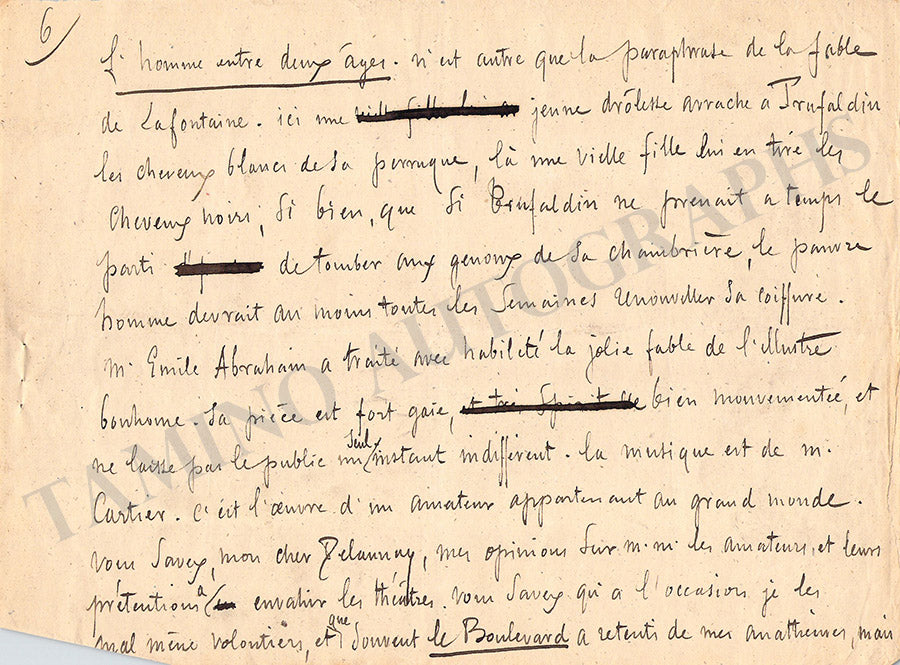 6
L'homme entre deux âges. n'est autre que la paraphrase de la fable
de Lafontaine. ici une vielle fille lui a jeune drôlesse arrache a Trufaldin
les cheveux blancs de sa perruque, là une vielle fille lui en tire les
cheveux noirs; si bien, que si Trufaldin ne prenait a temps le
parti de tomber aux genoux de sa chambrière, le pauvre
homme devrait au moins toutes les semaines renouveller sa coiffure.
M. Emile Abraham a traité avec habileté la jolie fable de l'illustre
bonhome. Sa pièce est fort gaie, et très spirituelle bien mouvementée, et
ne laisse pas le public un seul instant indifférent. la musique est de m.
Cartier. c'est l'œuvre d'un amateur appartenant au grand monde.
vous savez, mon cher Delaunay, mes opinions sur m.m. les amateurs, et leurs
prétentions a envahir les théâtres. vous savez qu'a l'occasion je les
mal mène volontiers, et que souvent le Boulevard a retenti de mes anathèmes, mais
TAMINO AUTOGRAPHS